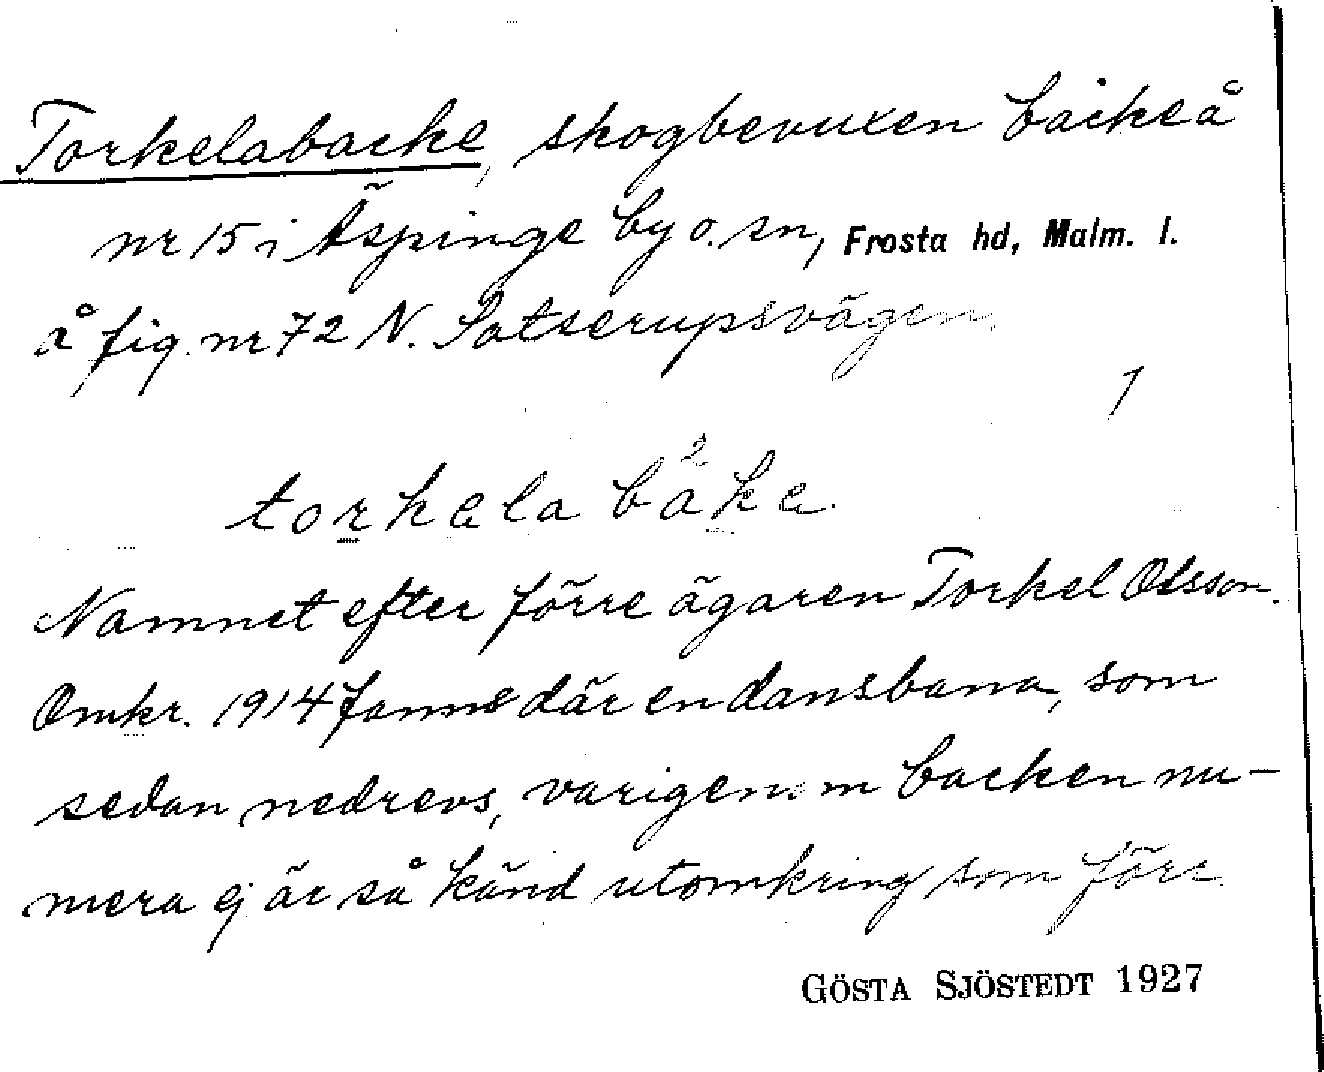 Torkelabacke, skogbevuxen backe å
nr 15 i Äspinge by o. sn, Frosta hd, Malm. l.
å fig. nr 72 N. Satserupsvägen.
1
torkela bakа
Namnet efter förre ägaren Torkel Olsson.
Omkr. 1914 fanns där en dansbana, som
sedan nedrevs, varigenom backen nu-
mera ej är så känd utomkring som förr.
GÖSTA SJÖSTEDT 1927